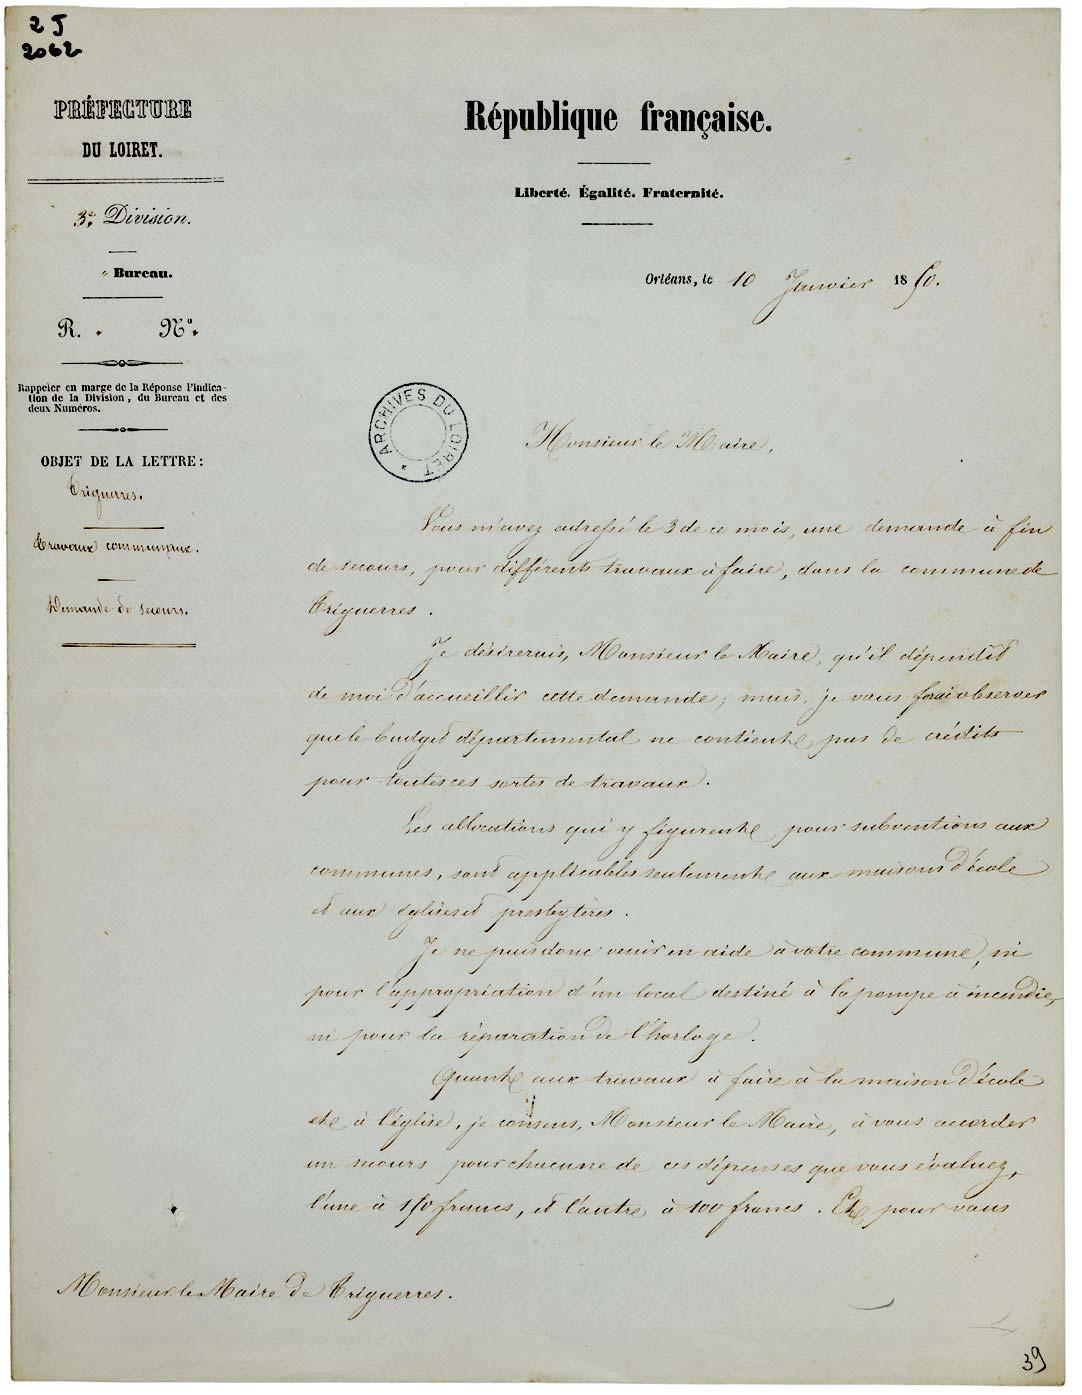 2 J
2062
PRÉFECTURE
DU LOIRET.
3e. Division.
" Bureau.
R. " N°. "
Rappeler en marge de la Réponse l'indica-
tion de la Division, du Bureau et des
deux Numéros.
OBJET DE LA LETTRE :
Triguerres.
Travaux communaux.
Demande de secours.
République française.
Liberté. Égalité. Fraternité.
Orléans, le 10 Janvier 1850.
ARCHIVES DU LOIRET *
Monsieur le Maire,
Vous m'avez adressé le 3 de ce mois, une demande à fin
de secours, pour différents travaux à faire, dans la commune de
Triguerres.
Je désirerais, Monsieur le Maire, qu'il dépendît
de moi d'accueillir cette demande ; mais, je vous ferai observer
que le budget départemental ne contient pas de crédits
pour toutes ces sortes de travaux.
Les allocations qui y figurent pour subventions aux
communes, sont applicables seulement aux maisons d'école
et aux églises et presbytères.
Je ne puis donc venir en aide à votre commune, ni
pour l'appropriation d'un local destiné à la pompe à incendie,
ni pour la réparation de l'horloge.
Quant aux travaux à faire à la maison d'école
et à l'église, je consens, Monsieur le Maire, à vous accorder
un secours pour chacune de ces dépenses que vous évaluez,
l'une à 150 francs, et l'autre à 100 francs. Et pour vous
Monsieur le Maire de Triguerres.
39